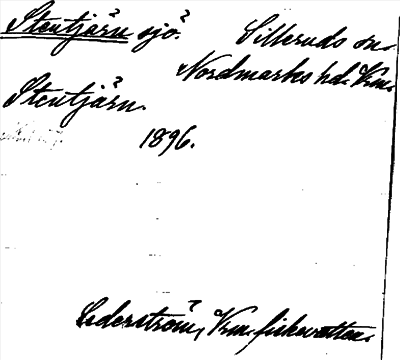 Stentjärn sjö. Silleruds sn.
Nordmarks hd. Vrm.
Stentjärn.
1896.
Cederström, Vrm. fiskevatten.